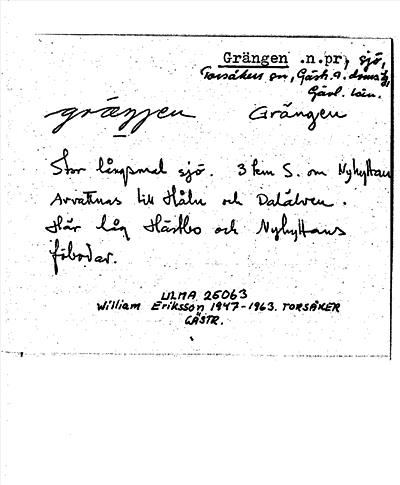 Grängen .n.pr, sjö,
Torsåkers sn, Gästr. Ö. domsaga
Gävl. län.
grängen Grängen
Stor långsmal sjö. 3 km S. om Nyhyttan
Avvattnas till Håln och Dalälven.
Här låg Hästbo och Nyhyttans
fäbodar.
ULMA 25063
William Eriksson 1947-1963. TORSÅKER
GÄSTR.